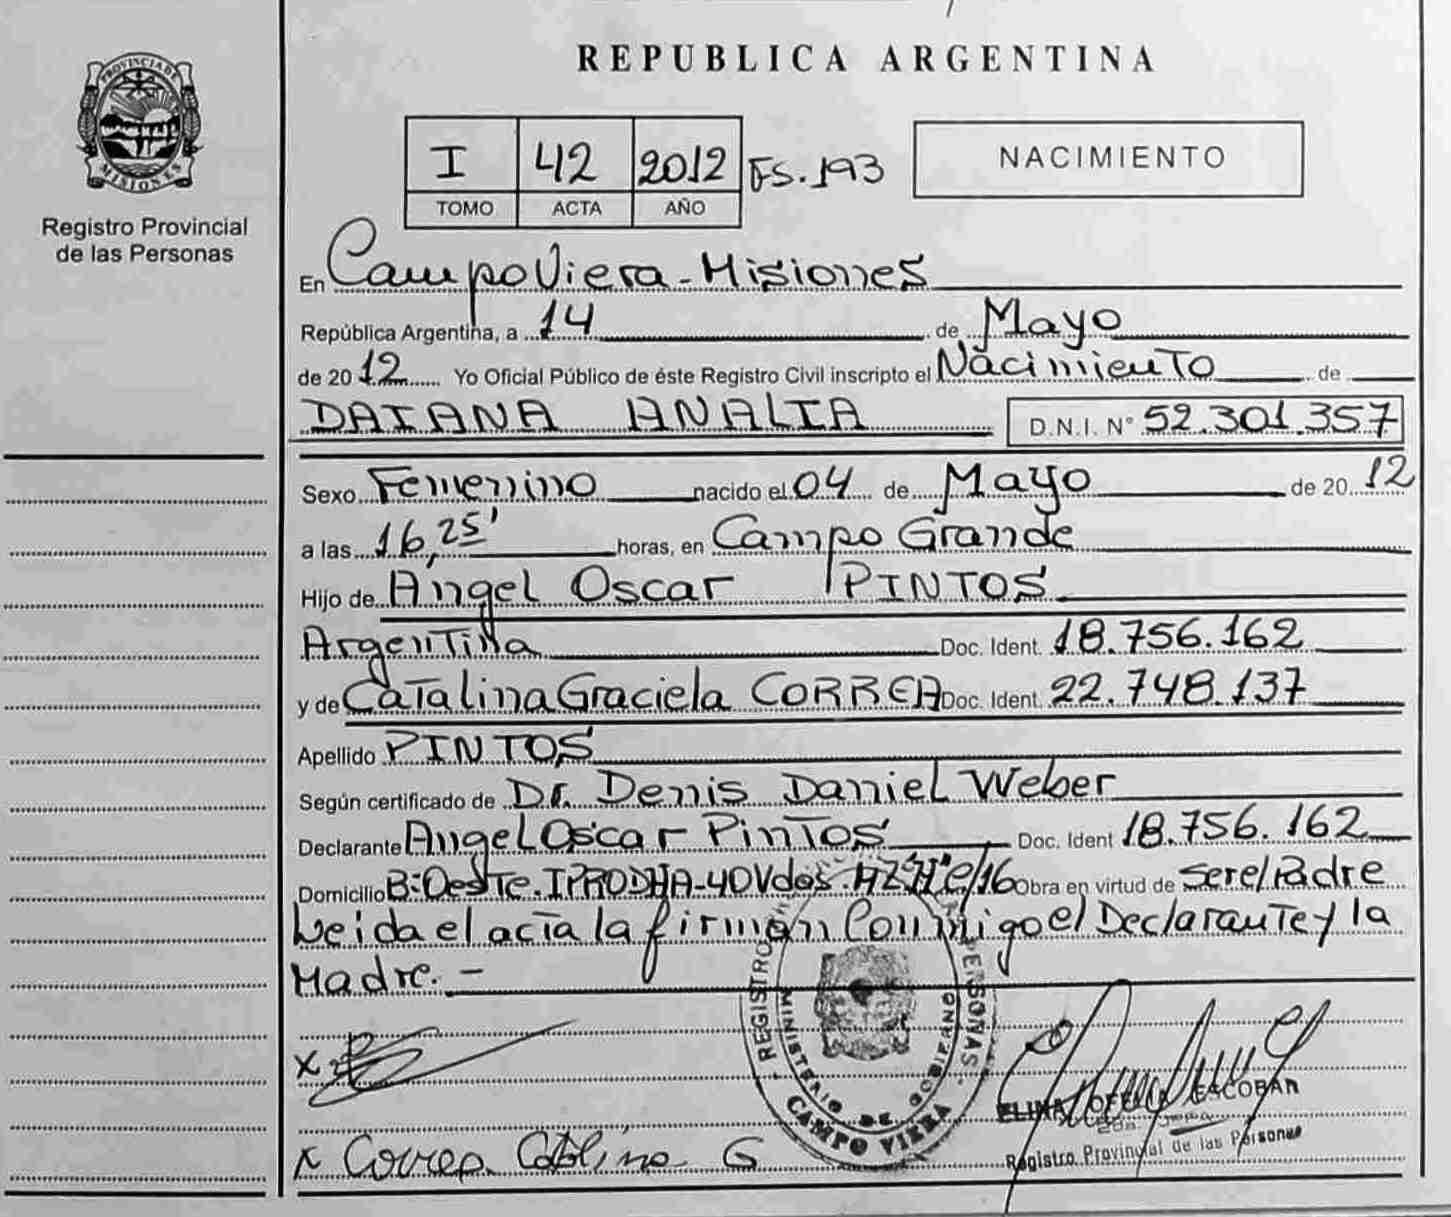 REPUBLICA ARGENTINA
PROVINCIA DE MISIONES
Registro Provincial
de las Personas
I 42 2012 FS. 193
TOMO ACTA AÑO
NACIMIENTO
En Campo Viera - Misiones
República Argentina, a 14 de Mayo
de 2012 Yo Oficial Público de éste Registro Civil inscripto el Nacimiento de
DAIANA ANALIA D.N.I. N° 52.301.357
Sexo Femenino nacido el 04 de Mayo de 2012
a las 16,25' horas, en Campo Grande
Hijo de Angel Oscar PINTOS
Argentina Doc. Ident. 18.756.162
y de Catalina Graciela CORREA Doc. Ident. 22.748.137
Apellido PINTOS
Según certificado de Dr. Denis Daniel Weber
Declarante Angel Oscar Pintos Doc. Ident 18.756.162
Domicilio B: Oeste. IPRODHA-40Vdas. Obra en virtud de ser el Padre
Leida el acta la firman Conmigo el Declarante y la
Madre. -
REGISTRO PERSONAS
MINISTERIO DE GOBIERNO
CAMPO VIERA
X
ELINA OFELIA ESCOBAR
Registro Provincial de las Personas
X Correa Catalina G